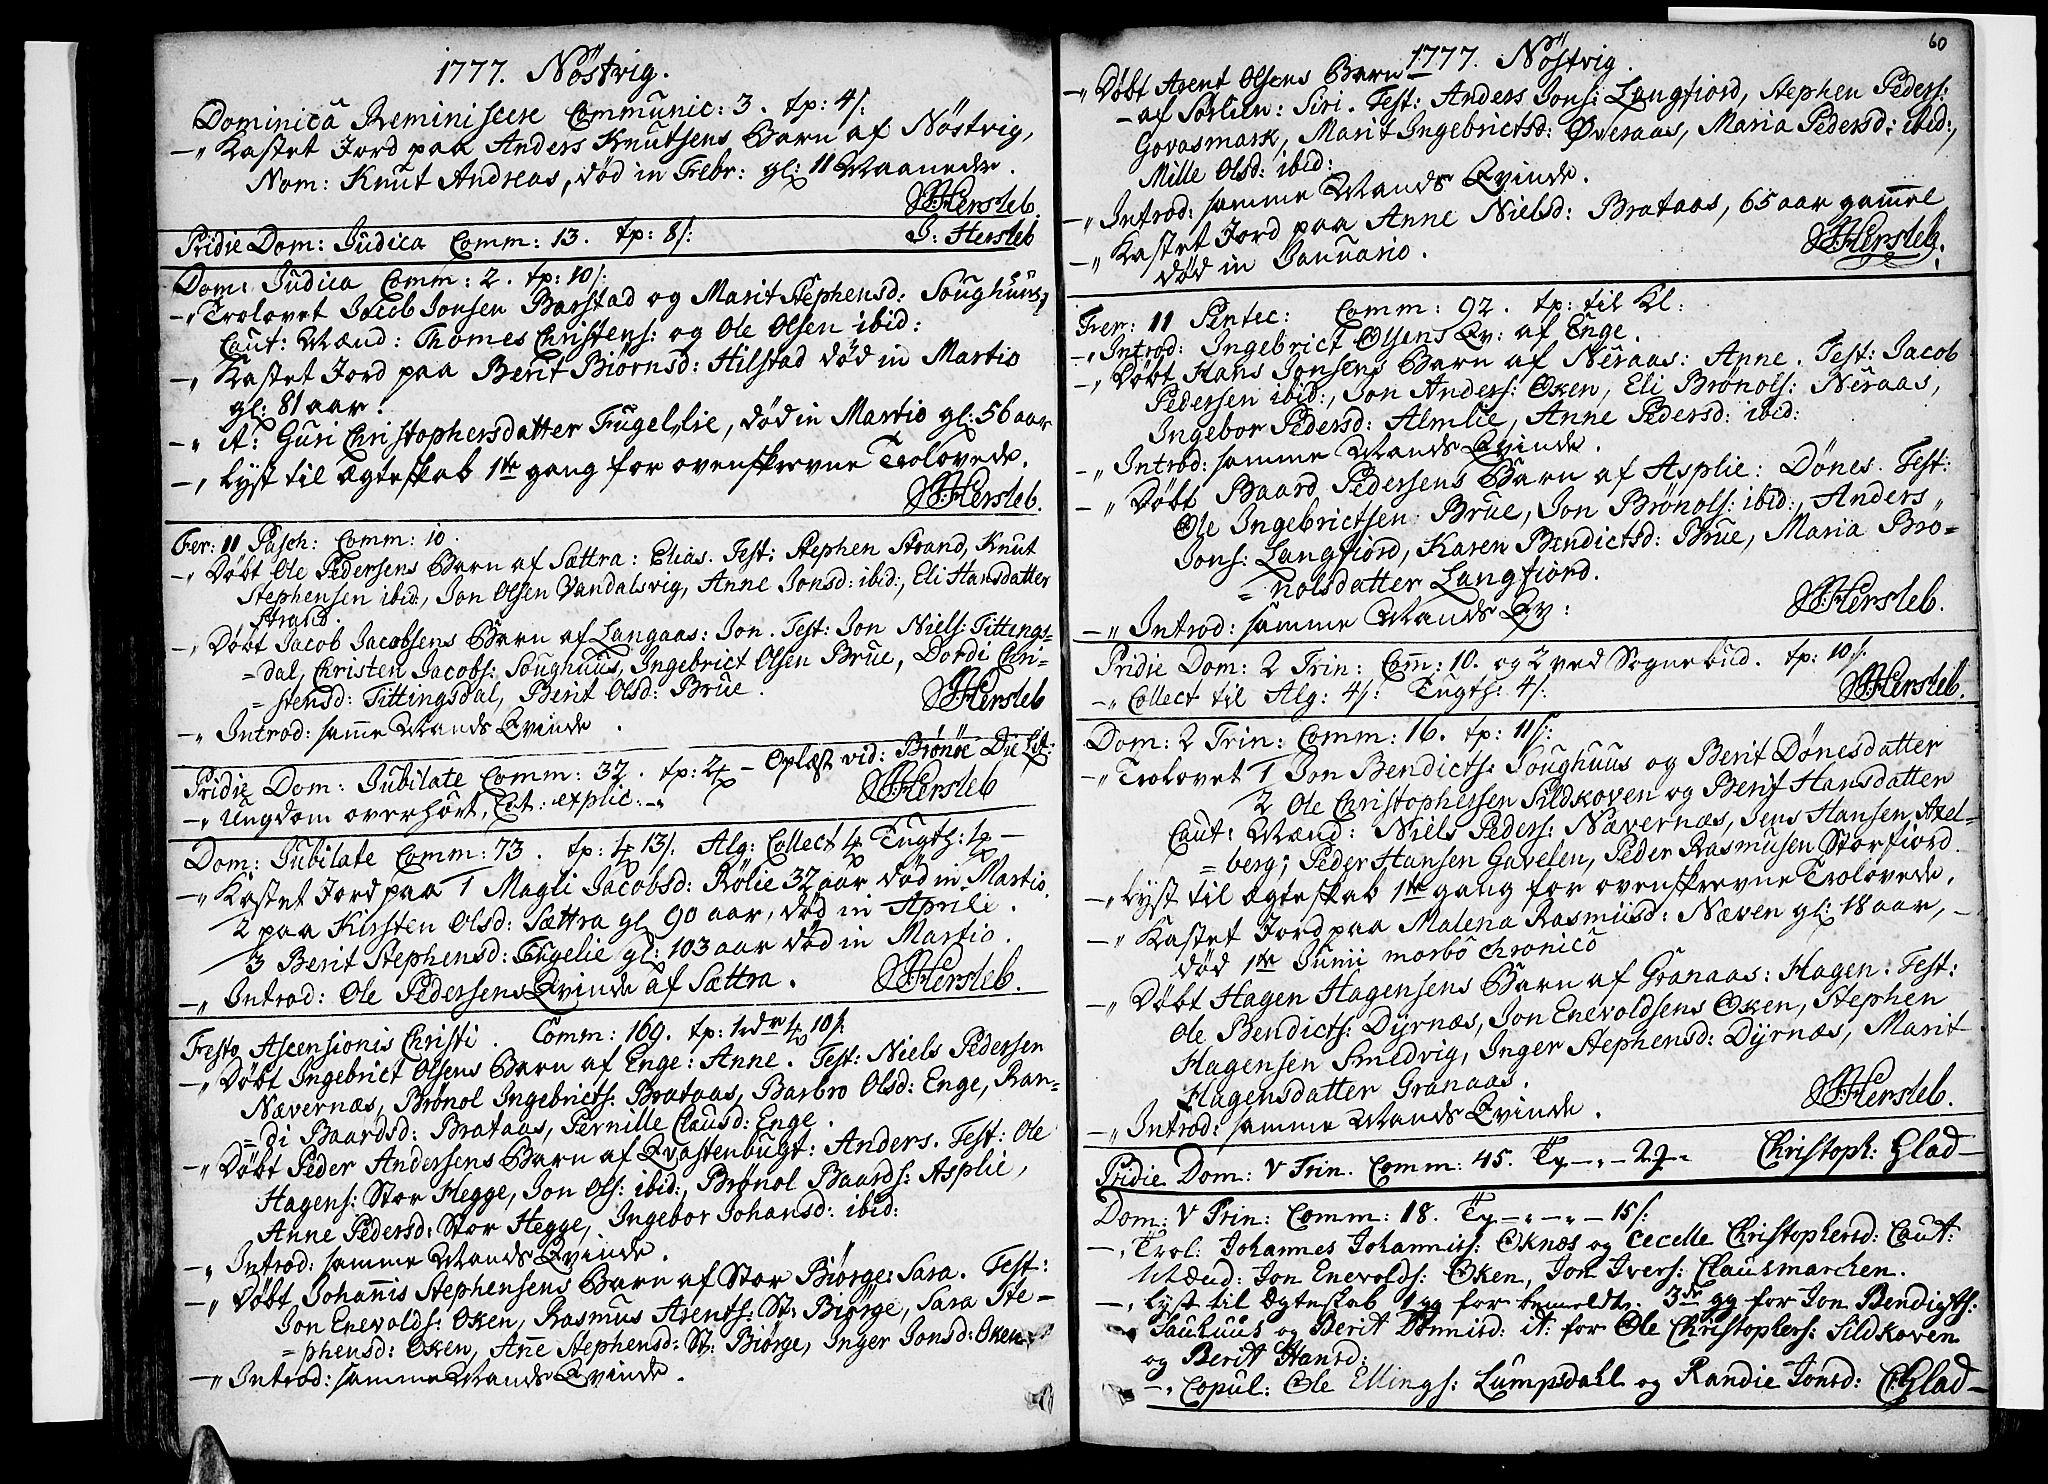 1777. Nöstvig.
Dominica Reminiscere Communic: 3. tp: 4/:
—" Kastet Jord paa Anders Knutsens Barn af Nöstvig,
Nom: Knut Andreas, død in Febr: gl: 11 Maaneder.
J: Hersleb.
Pridie Dom: Judica Comm: 13. tp: 8/: J: Hersleb
Dom: Judica Comm: 2. tp: 10/:
—" Trolovet Jacob Jonsen Barstad og Marit Stephensd: Soughuus,
Caut: Mænd: Thomes Christens: og Ole Olsen ibid:
—" Kastet Jord paa Berit Biørnsd: Hilstad død in Martio
gl: 81 aar.
—" it: Guri Christophersdatter Fugellie, død in Martio gl: 56 aar
—" Lyst til Ægteskab 1te gang for ovenskrevne Trolovede.
J: Hersleb.
Fer: II Pasch: Comm: 10.
—" Døbt Ole Pedersens Barn af Sættra: Elias. Test: Stephen Strand, Knut
Stephensen ibid:, Jon Olsen Vandalsvig, Anne Jonsd: ibid:, Eli Hansdatter
Strand.
—" Døbt Jacob Jacobsens Barn af Langaas: Jon. Test: Jon Niels: Tittings=
=dal, Christen Jacobs: Soughuus, Ingebrict Olsen Brue, Dordi Chri=
=stensd: Tittingsdal, Berit Olsd: Brue.
J: Hersleb
—" Introd: samme Mands Qvinde.
Pridie Dom: Jubilate Comm: 32. tp: 2 — Oplæst vid: Brönöe Die Lit:
—" Ungdom overhört, Cat: explic: —" J: Hersleb
Dom: Jubilate Comm: 73. tp: 4 13/. Alg: Collect 4 Tugth: 4 —
—" Kastet Jord paa 1 Magli Jacobsd: Rølie 32 aar død in Martio.
2 paa Kirsten Olsd: Sættra gl 90 aar, død in Aprili.
3 Berit Stephensd: Fugelie gl: 103 aar død in Martio.
—" Introd: Ole Pedersens Qvinde af Sættra. J: Hersleb.
Festo Ascensionis Christi. Comm: 169. tp: 1rdr 4 10/:
—" Døbt Ingebrict Olsens Barn af Enge: Anne. Test: Niels Pedersen
Nævernæs, Brønol Ingebricts: Brataas, Barbro Olsd: Enge, Ran=
=di Baardsd: Brataas, Pernille Clausd: Enge.
—" Døbt Peder Andersens Barn af Qvastenbugt: Anders. Test: Ole
Hagens: Stor Hegge, Jon Ols: ibid:, Brønol Baards: Asplie,
Anne Pedersd: Stor Hegge, Ingebor Johansd: ibid:
—" Introd: samme Mands Qvinde.
—" Døbt Johannis Stephensens Barn af Stor Biørge: Sara. Test:
Jon Enevolds: Oxen, Rasmus Arents: St: Biørge, Sara Ste=
=phensd: Oxen, Anne Stephensd: St: Biørge, Inger Jonsd: Oxen
—" Introd: samme Mands Qvinde.
60
1777. Nöstvig.
—" Døbt Arent Olsens Barn
—af Sørlien: Siri. Test: Anders Jons: Langfiord, Stephen Peders:
Govasmark, Marit Ingebrictsd: Øveraas, Maria Pedersd: ibid:,
Mille Olsd: ibid:
—" Introd: samme Mands Qvinde.
—" Kastet Jord paa Anne Nielsd: Brataas, 65 aar gammel
død in Januario. J: Hersleb.
Fer: II Pentec: Comm: 92. tp: til Kl:
—" Introd: Ingebrict Olsens Qv: af Enge.
—" Døbt Hans Jonsens Barn af Neraas: Anne. Test: Jacob
Pedersen ibid:, Jon Anders: Oxen, Eli Brönols: Neraas,
Ingebor Pedersd: Almlie, Anne Pedersd: ibid:
—" Introd: samme Mands Qvinde.
—" Døbt Baard Pedersens Barn af Asplie: Dönes. Test:
Ole Ingebrictsen Brue, Jon Brönols: ibid:, Anders
Jons: Langfiord, Karen Bendictsd: Brue, Maria Brö=
=nolsdatter Langfiord. J: Hersleb.
—" Introd: samme Mands Qv:
Pridie Dom: 2 Trin: Com: 10. og 2 ved Sognebud. tp: 10/:
—" Collect til Alg: 4/: Tugth: 4/: J: Hersleb.
Dom: 2 Trin: Comm: 16. tp: 11/:
—" Trolovet 1 Jon Bendicts: Soughuus og Berit Dönesdatter
2 Ole Christophersen Sildkoven og Berit Hansdatter
Caut: Mænd: Niels Peders: Nævernæs, Jens Hansen Axel=
=berg; Peder Hansen Gavelen, Peder Rasmusen Storfiord.
—" Lyst til Ægteskab 1te gang for ovenskrevne Trolovede.
—" Kastet Jord paa Malena Rasmusd: Næven gl: 18 aar, —
død 1te Junii morbo chronico
—" Døbt Hagen Hagensens Barn af Granaas: Hagen: Test:
Ole Bendicts: Dyrnæs, Jon Enevoldsens Oxen, Stephen
Hagensen Smedvig, Inger Stephensd: Dyrnæs, Marit
Hagensdatter Granaas. J: Hersleb.
—" Introd: samme Mands Qvinde.
Pridie Dom: V Trin. Comm: 45. Christoph: Glad—
Dom: V Trin: Comm: 18. 15/:
—" Trol: Johannes Johannis: Oknæs og Cecelle Christophersd: Caut:
Mænd: Jon Enevolds: Oken, Jon Ivers: Clausmarchen.
—" Lyst til Ægteskab 1 gg for bemeldte. 3de gg for Jon Bendigts:
Sauhuus og Berit Dönnisd: it: for Ole Christophers: Sildkoven
og Berit Hansd:
—" Copul: Ole Ellings: Lumpsdahl og Randie Jonsd: C: Glad—